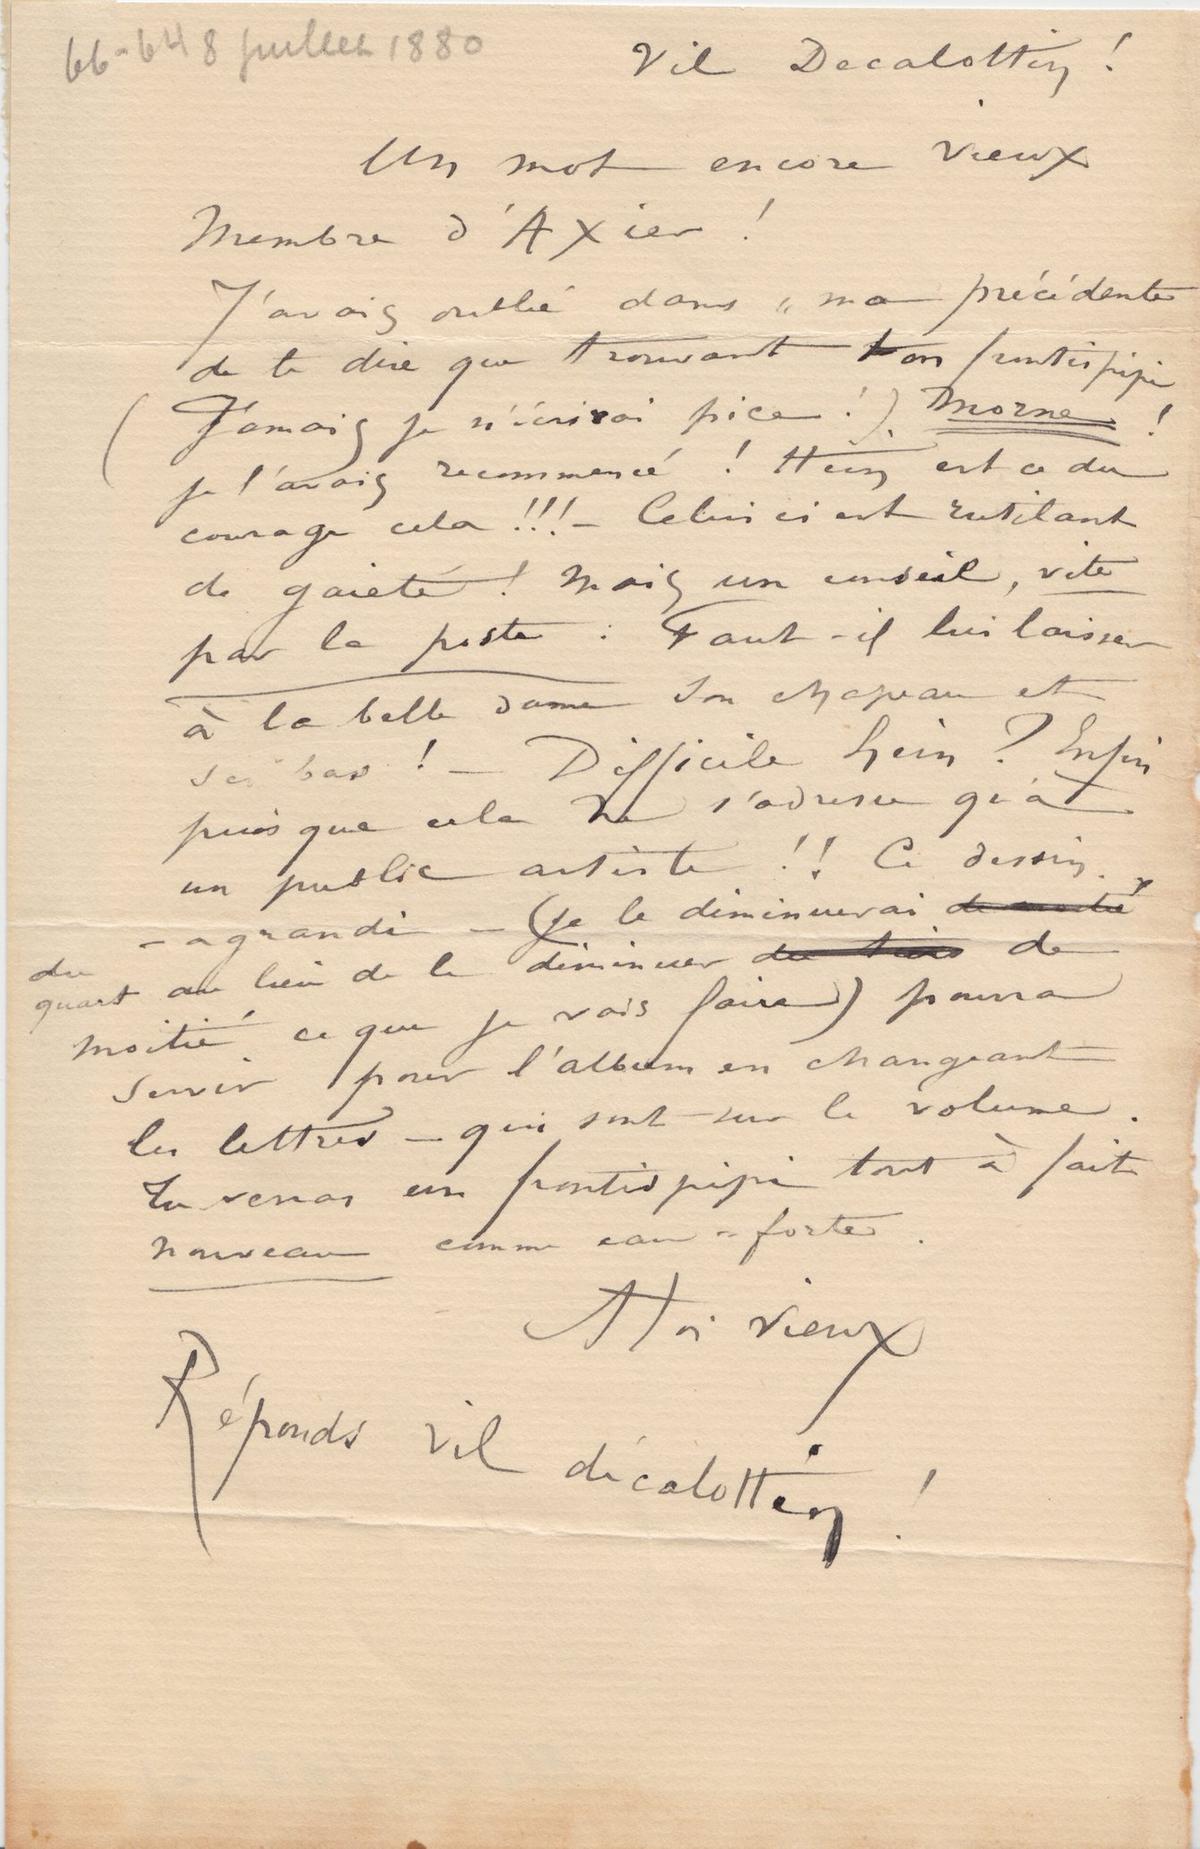 66-64 8 juillet 1880
Vil Decalottin !
Un mot encore vieux
Membre d'Axier !
J'avais oublié dans „ ma précédente
de te dire que trouvant ton frontispipi
(Jamais je n'écrirai pice !) Morne !
je l'avais recommencé ! Hein est ce du
courage cela !!! – Celui ci est rutilant
de gaieté ! Mais un conseil, vite
par la poste : Faut-il lui laisser
à la belle dame son chapeau et
ses bas ! – Difficile hein ? Enfin
puisque cela ne s'adresse qu'à
un public artiste !! Ce dessin
– agrandi – (je le diminuerai de moitié
du
quart au lieu de le diminuer du tiers de
moitié ce que je vais faire) pourra
servir pour l'album en changeant
les lettres – qui sont sur le volume.
Tu verras un frontispipi tout à fait
nouveau comme eau-forte.
A toi vieux
Réponds vil décalottin !